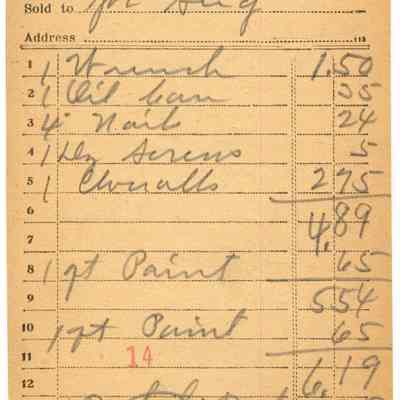 Sold to
Address
1 1 Wrench 1.50
2 1 Oil Can 35
3 4 Nails 24
4 1 Dz Screws 5
5 1 Overalls 275
6 4.89
7
8 1 qt Paint 65
9 554
10 1 qt Paint 65
11 14
12 6.19